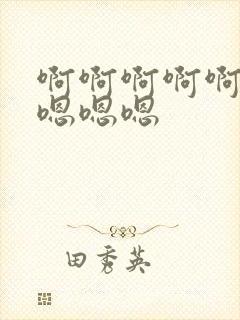 啊啊啊啊啊
嗯嗯嗯
田秀英